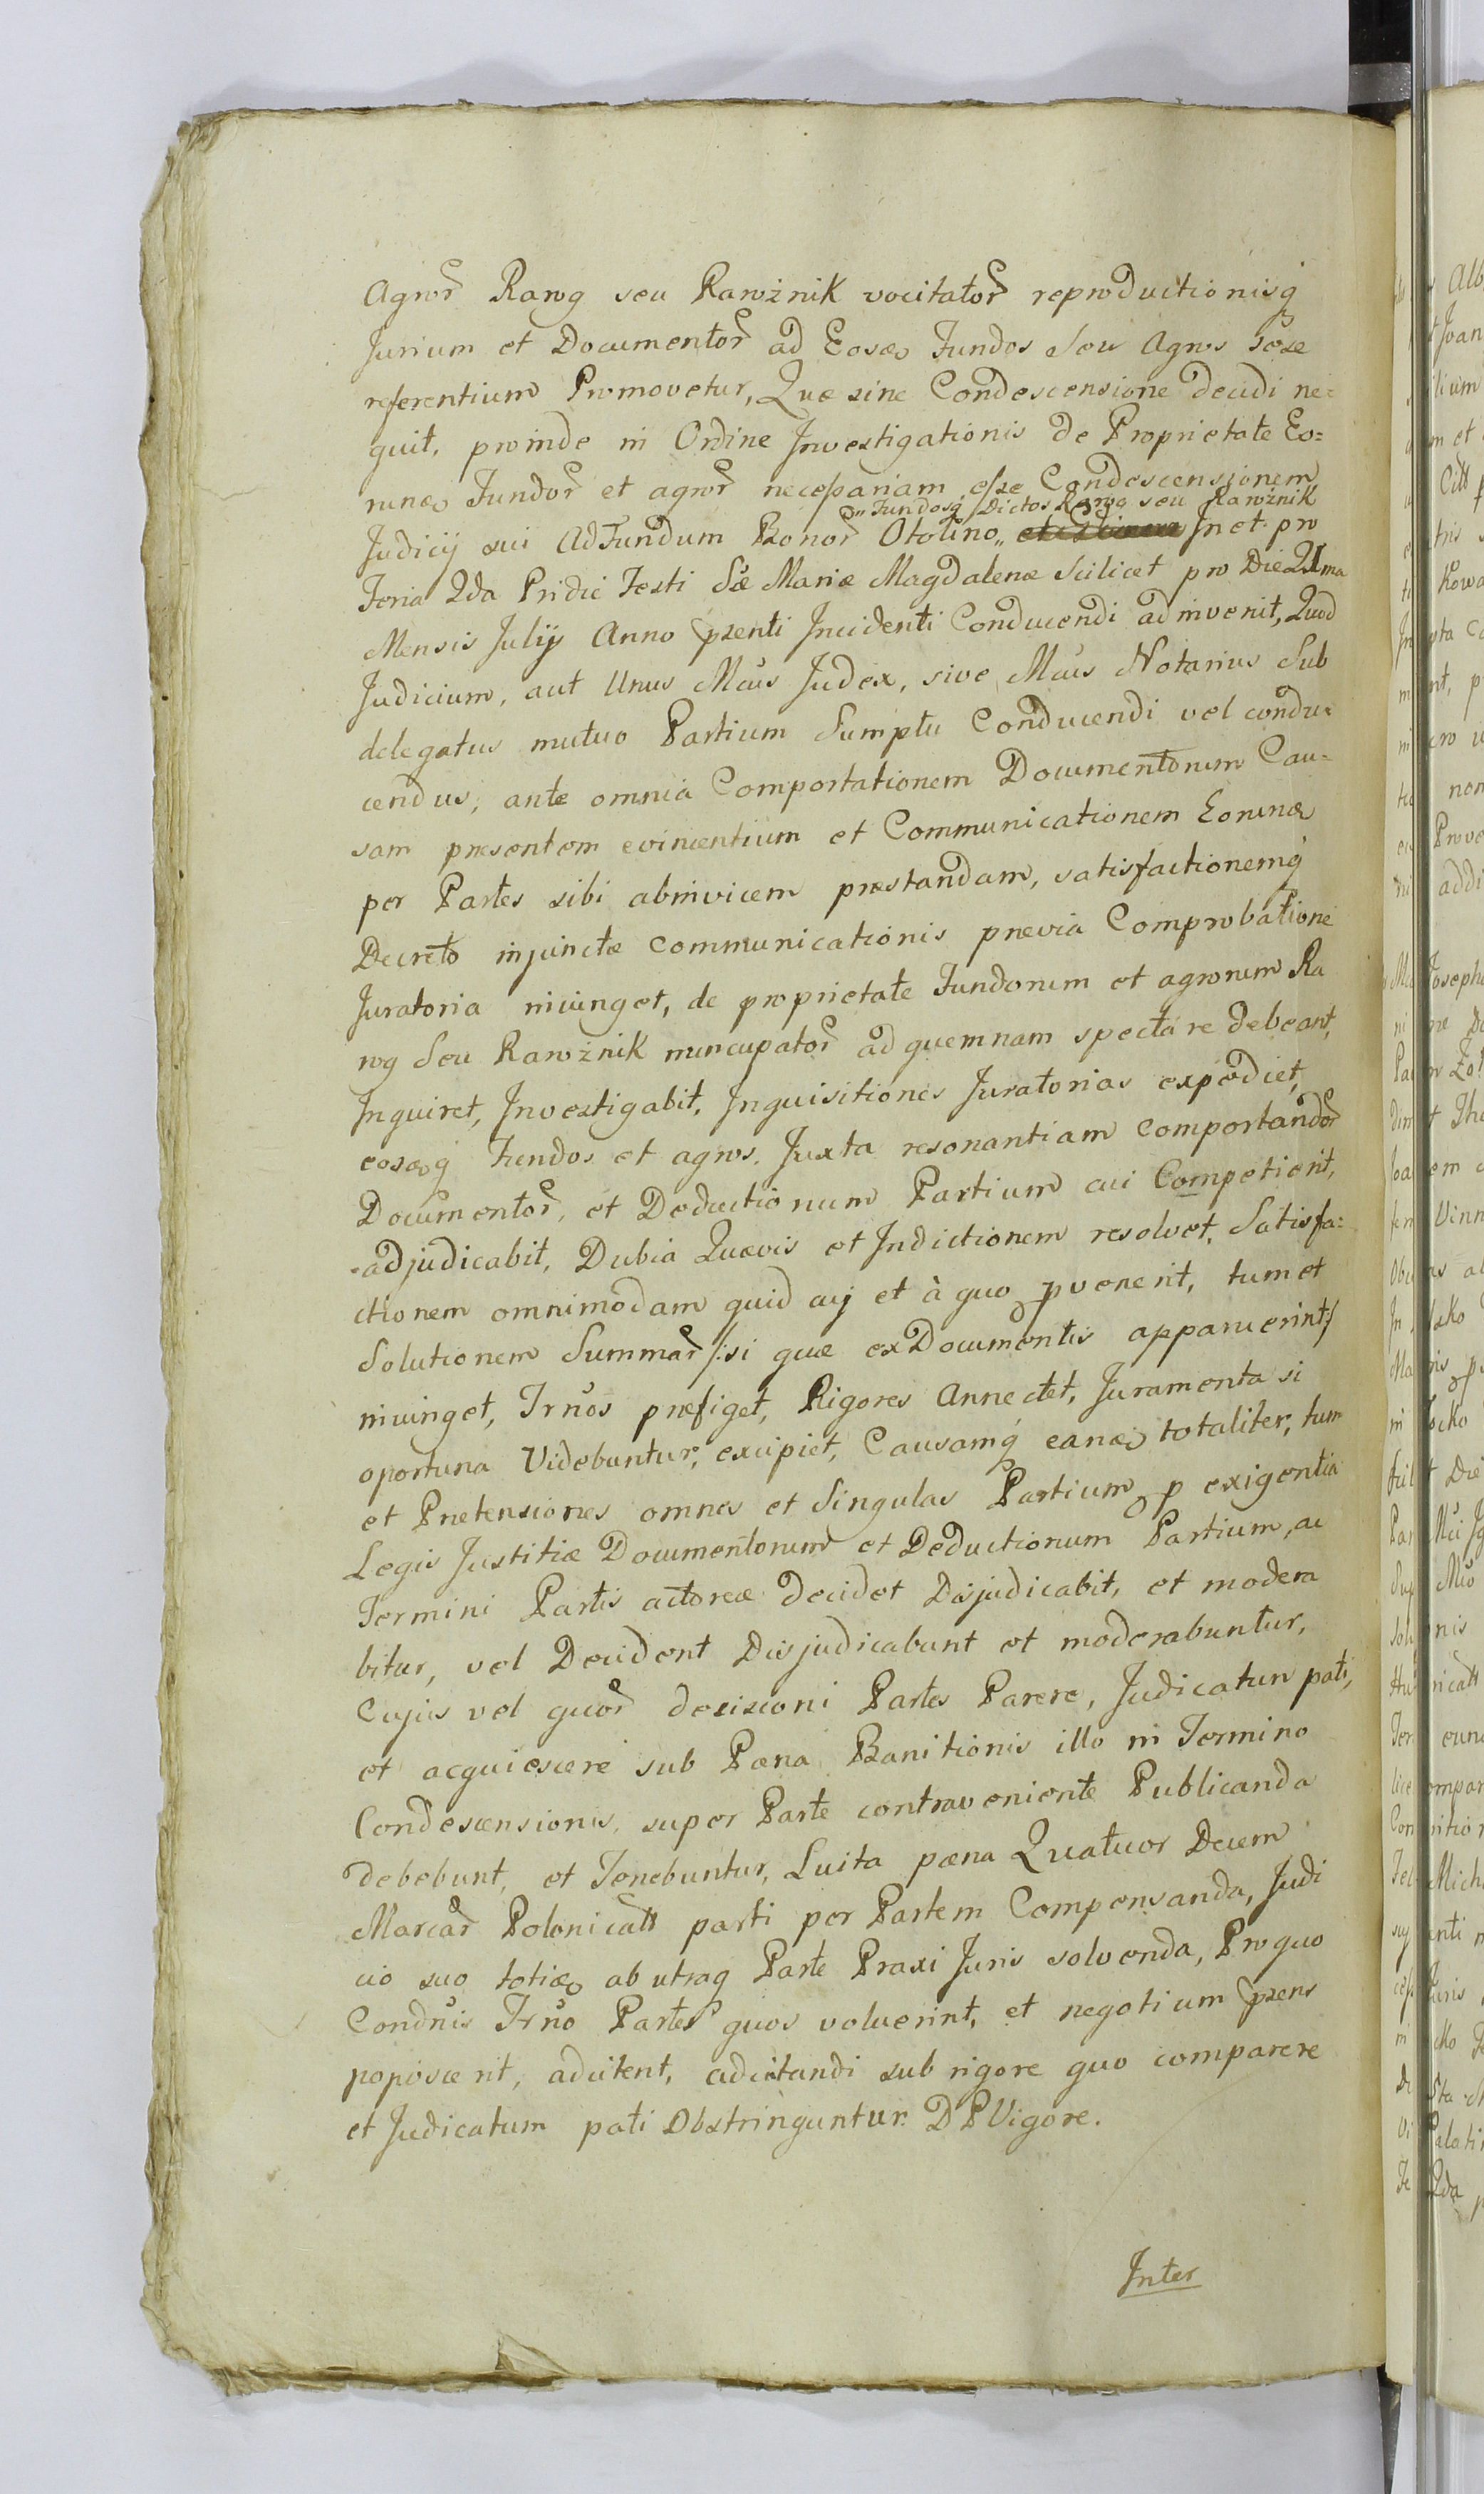 Agror Rawg seu Rawżnik vocitator reproductionisq
Jurium et Documentor ad Eosdo Fundos Seu Agros sese
referentium Promovetur, Quæ sine Condescensione decidi ne=
quit, proinde in Ordine Investigationis de Proprietate Eo=
rundo Fundor et agror necessariam esse Condescensionem
" Fundosq Dictos Rawg seu Rawżnik
Judicij sui Ad Fundum Bonor Otolino " In et pro
Feria 2da Pridie Festi Sæ Mariæ Magdalenæ Scilicet pro Die 21ma
Mensis Julij Anno psenti Incidenti Conducendi adinvenit, Quod
Judicium, aut Unus Mcus Judex, sive Mcus Notarius Sub
delegatus mutuo Partium Sumptu Conducendi vel condu=
cendus, ante omnia Comportationem Documentorum Cau=
sam presentem evincentium et Communicationem Eorundo
per Partes sibi abinvicem prestandam, satisfactionemq
Decreto injunctæ communicationis prævia Comprobatione
Juratoria injunget, de proprietate Fundorum et agrorum Ra
wg Seu Rawżnik nuncupator ad quemnam spectare debeant,
Inquiret, Investigabit, Inquisitiones Juratorias expediet,
eosdoq Fundos et agros. Juxta resonantiam comportandor
Documentor, et Deductionum Partium cui Competierit,
adjudicabit, Dubia Quævis et Indictionem resolvet, Satisfa=
ctionem omnimodam quid cuj et à quo pvenerit, tum et
Solutionem Summar /:si quæ ex Documentis apparuerint:/
injunget, Trnos præfiget, Rigores Annectet, Juramenta si
oportuna Videbuntur, excipiet, Causamq eando totaliter, tum
et Prætensiones omnes et Singulas Partium p exigentia
Legis Justitiæ Documentorum et Deductionum Partium, ac
Termini Partis actoreæ decidet Disjudicabit, et modera
bitur, vel Decident Disjudicabunt et moderabuntur,
Cujus vel quor decisioni Partes Parere, Judicatum pati,
et acquiescere sub Pæna Banitionis illo in Termino
Condescensionis, super Parte contraveniente Publicanda
debebunt, et Tenebuntur, Luita pæna Quatuor Decem
Marcar Polonicall parti per Partem Compensanda, Judi
cio suo toties ab utraq Parte Praxi Juris solvenda, Pro quo
Condnis Trno Partes quos voluerint, et negotium psens
poposcerit, adcitent, adcitandi sub rigore quo comparere
et Judicatum pati Obstringuntur. D P Vigore.
Inter